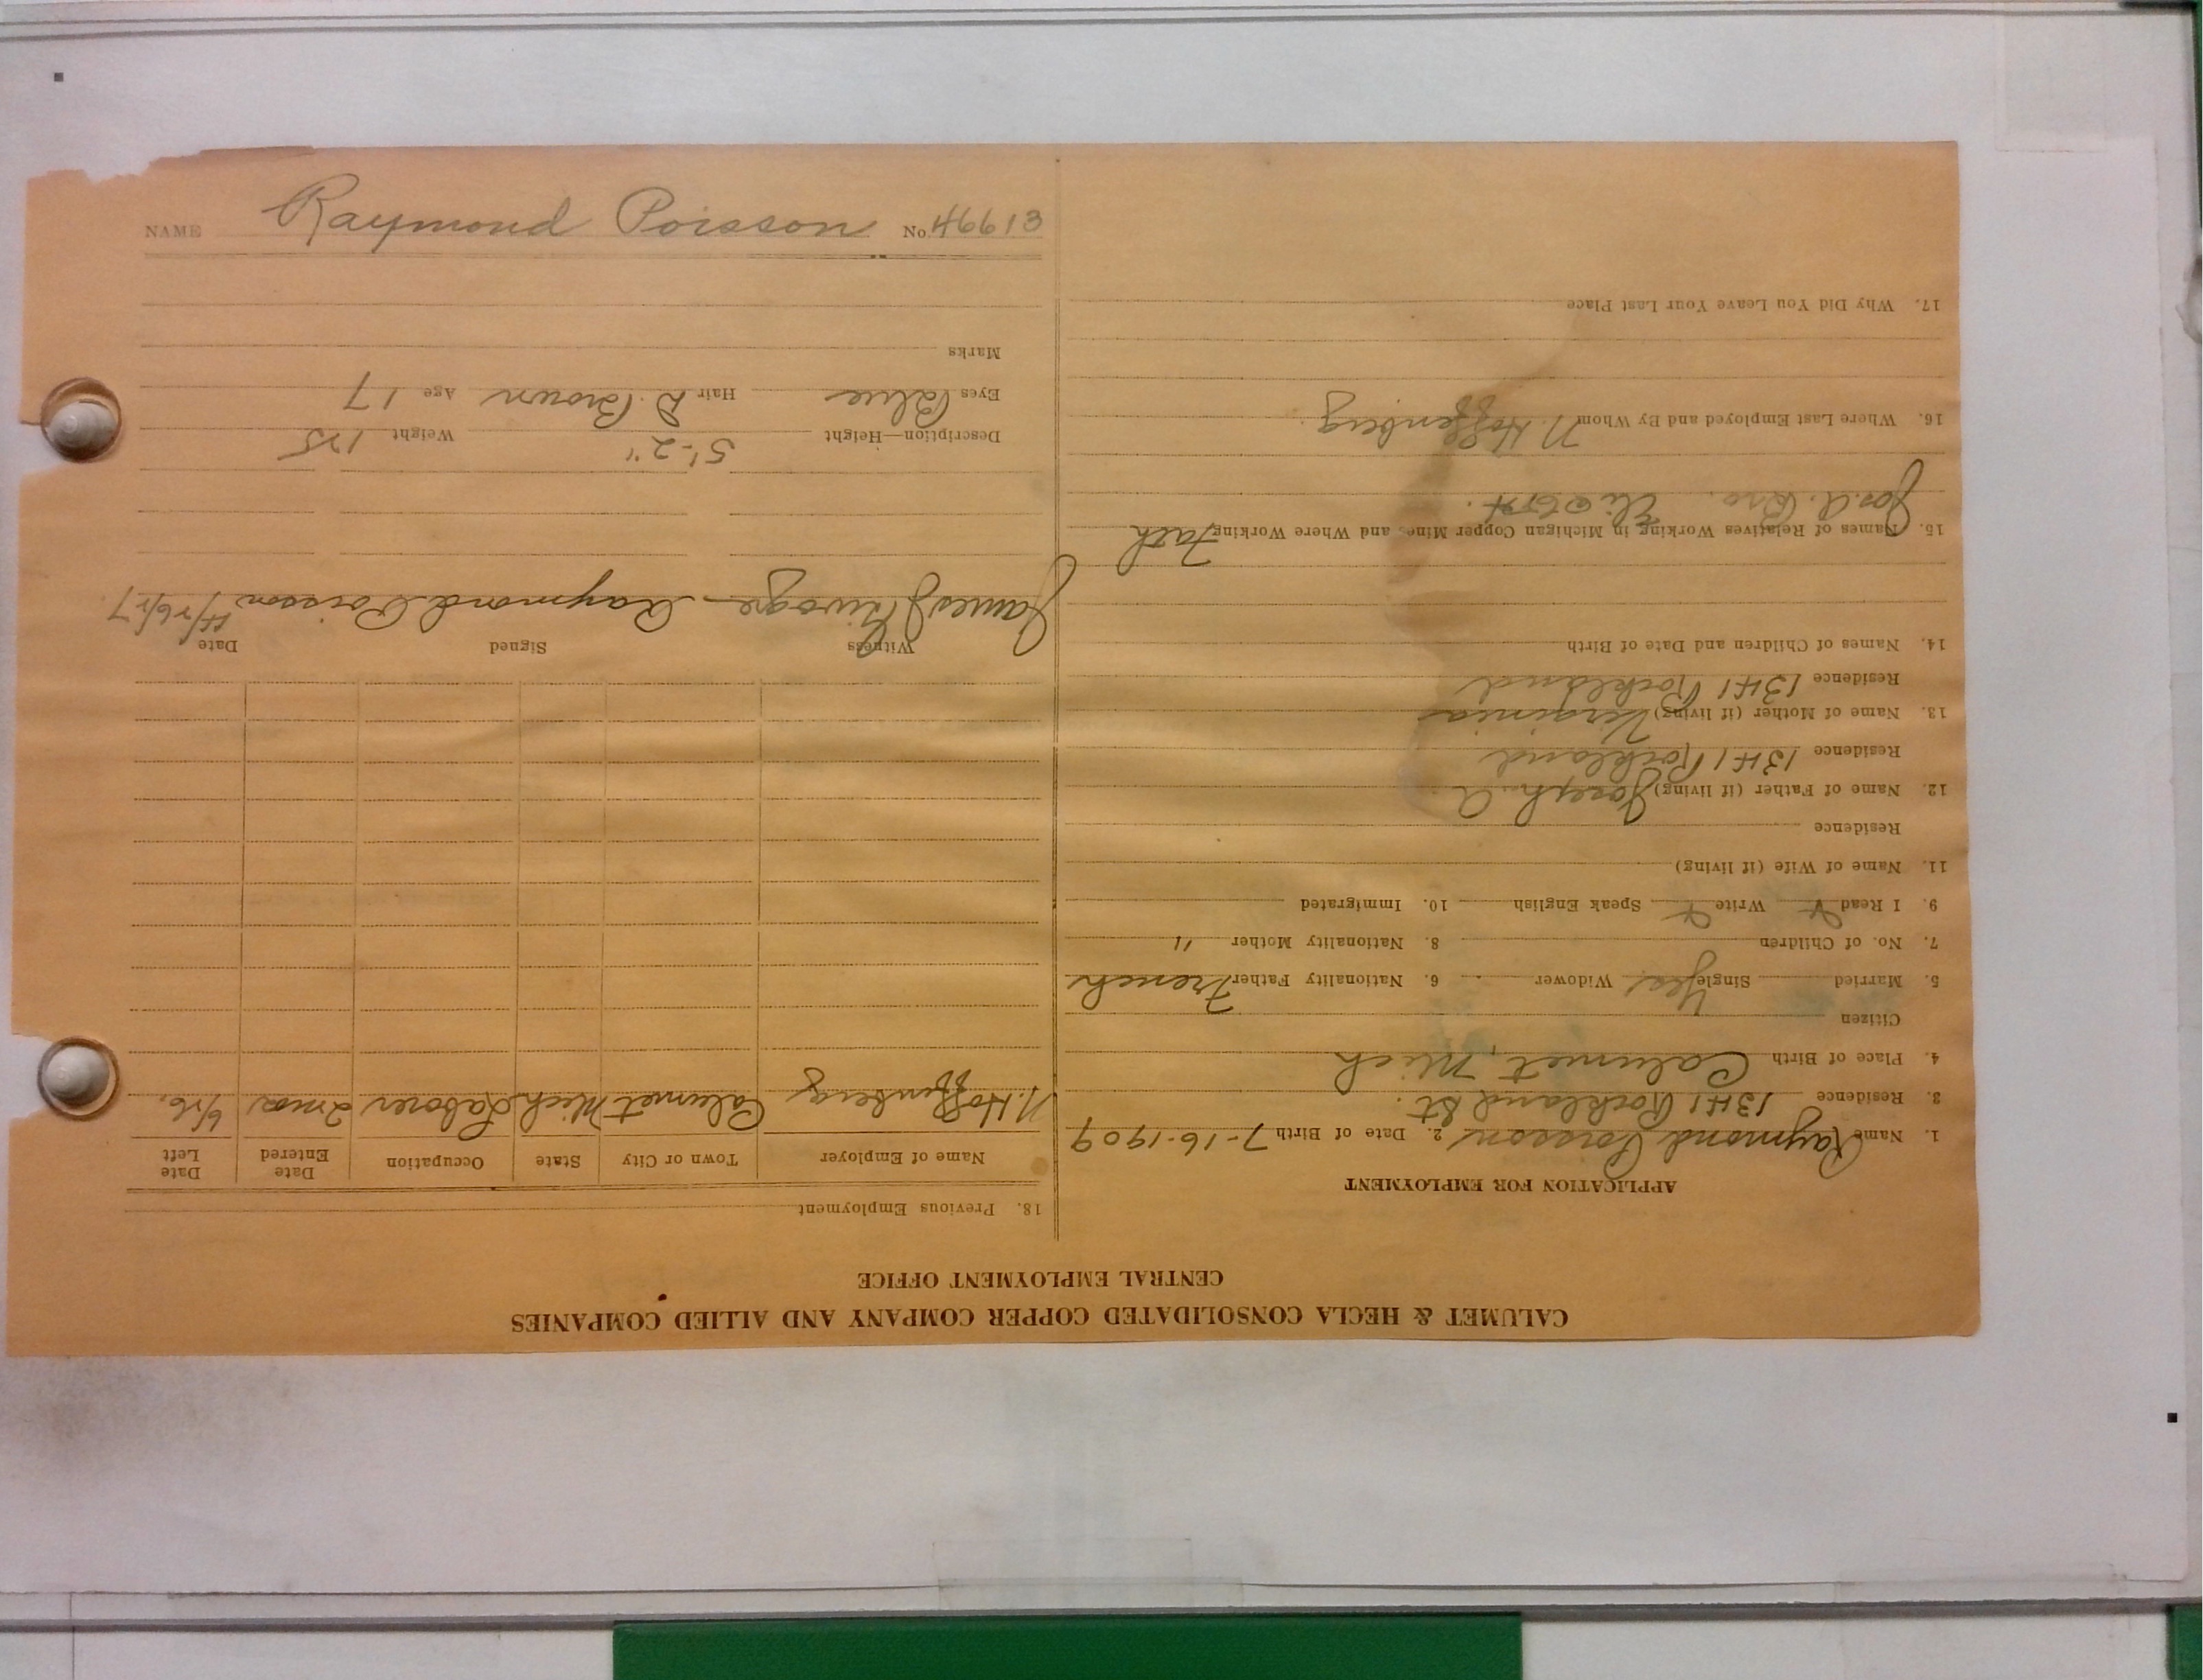 CALUMET & HECLA CONSOLIDATED COPPER COMPANY AND ALLIED COMPANIES
CENTRAL EMPLOYMENT OFFICE
APPLICATION FOR EMPLOYMENT
1. Name Raymond Poisson 2. Date of Birth 7-16-1909
3. Residence 1341 Rockland St.
4. Place of Birth Calumet, Mich
Citizen
5. Married Single Yes Widower 6. Nationality Father French
7. No. of Children 8. Nationality Mother "
9. I Read Write Speak English 10. Immigrated
11. Name of Wife (if living)
Residence
12. Name of Father (if living) Joseph A
Residence 1341 Rockland
13. Name of Mother (if living) Virginia
Residence 1341 Rockland
14. Names of Children and Date of Birth
15. Names of Relatives Working in Michigan Copper Mines and Where Working Fath
Jos. A. Bro.
16. Where Last Employed and By Whom N. Hoffenberg.
17. Why Did You Leave Your Last Place
18. Previous Employment
Name of Employer Town or City State Occupation Date Entered Date Left
N. Hoffenberg Calumet Mich Laborer 2 mos 6/26.
Witness Signed Date
James Raymond Poisson 4/26/27
Description—Height 5'-2" Weight 125
Eyes Blue Hair D. Brown Age 17
Marks
NAME Raymond Poisson No. 46613